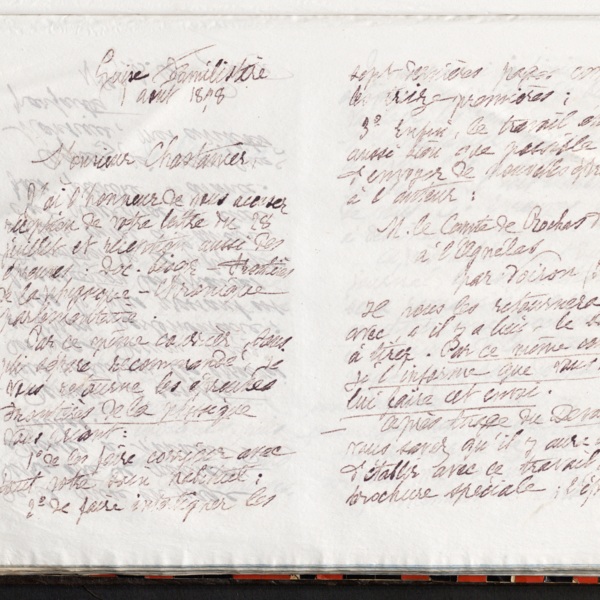 Guise Familistère
août 1898
Monsieur Chastanier,
J'ai l'honneur de vous accuser
réception de votre lettre du 28
juillet et réception aussi des
de la physique - Chronique
Par ce même courrier, sous
pli séparé recommandé, je
vous retourne les épreuves
frontières de la physique
vous priant:
1º de les faire corriger avec
tout votre soin habituel;
2º de faire interligner les
sept dernières pages
les premières;
3º Enfin, ce travail
aussitôt que possible
d'envoyer de nouvelles
à l'auteur:
M. le Comte de Rochas
à l'Agnélas
par Voiron
Il vous les retournera
avec, s'il y a lieu, le
à tirer. Par ce même
je l'informe que vous
lui faire cet envoi.
Après tirage du
vous savez qu'il y aura
d'établir avec ce travail
brochure spéciale;